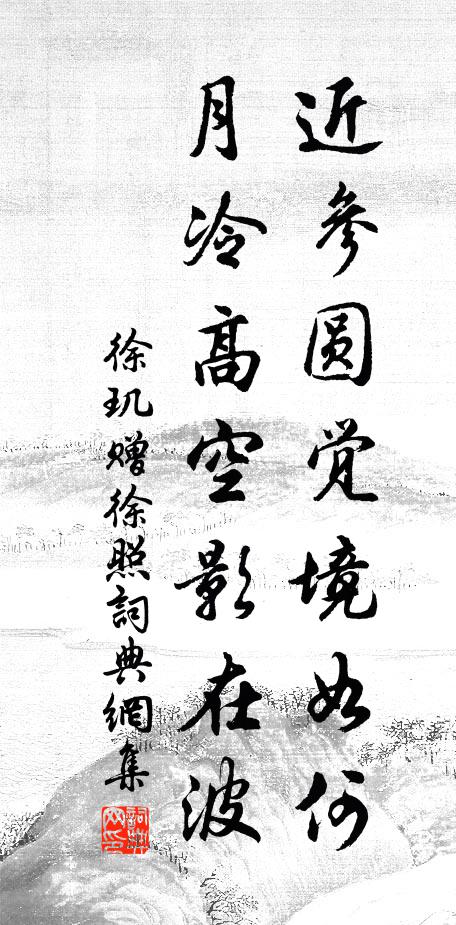 近参圆觉境如何
月冷高空影在波
徐玑赠徐照詞典網集